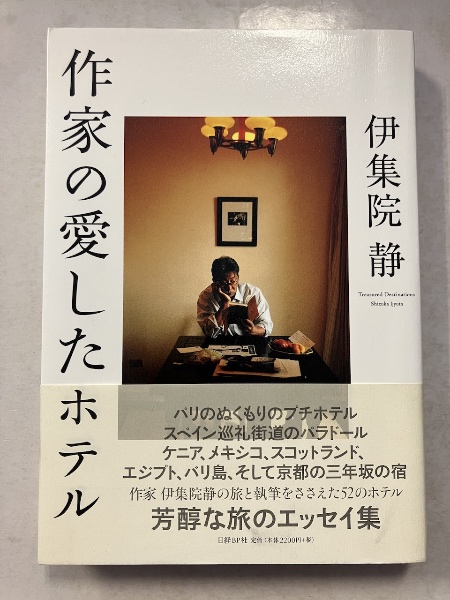 作家の愛したホテル
伊集院 静
Treasured Destinations
Shizuka Ijuin
パリのぬくもりのプチホテル
スペイン巡礼街道のパラドール
ケニア、メキシコ、スコットランド、
エジプト、バリ島、そして京都の三年坂の宿
作家 伊集院静の旅と執筆をささえた52のホテル
芳醇な旅のエッセイ集
日経BP社 定価(本体2200円+税)